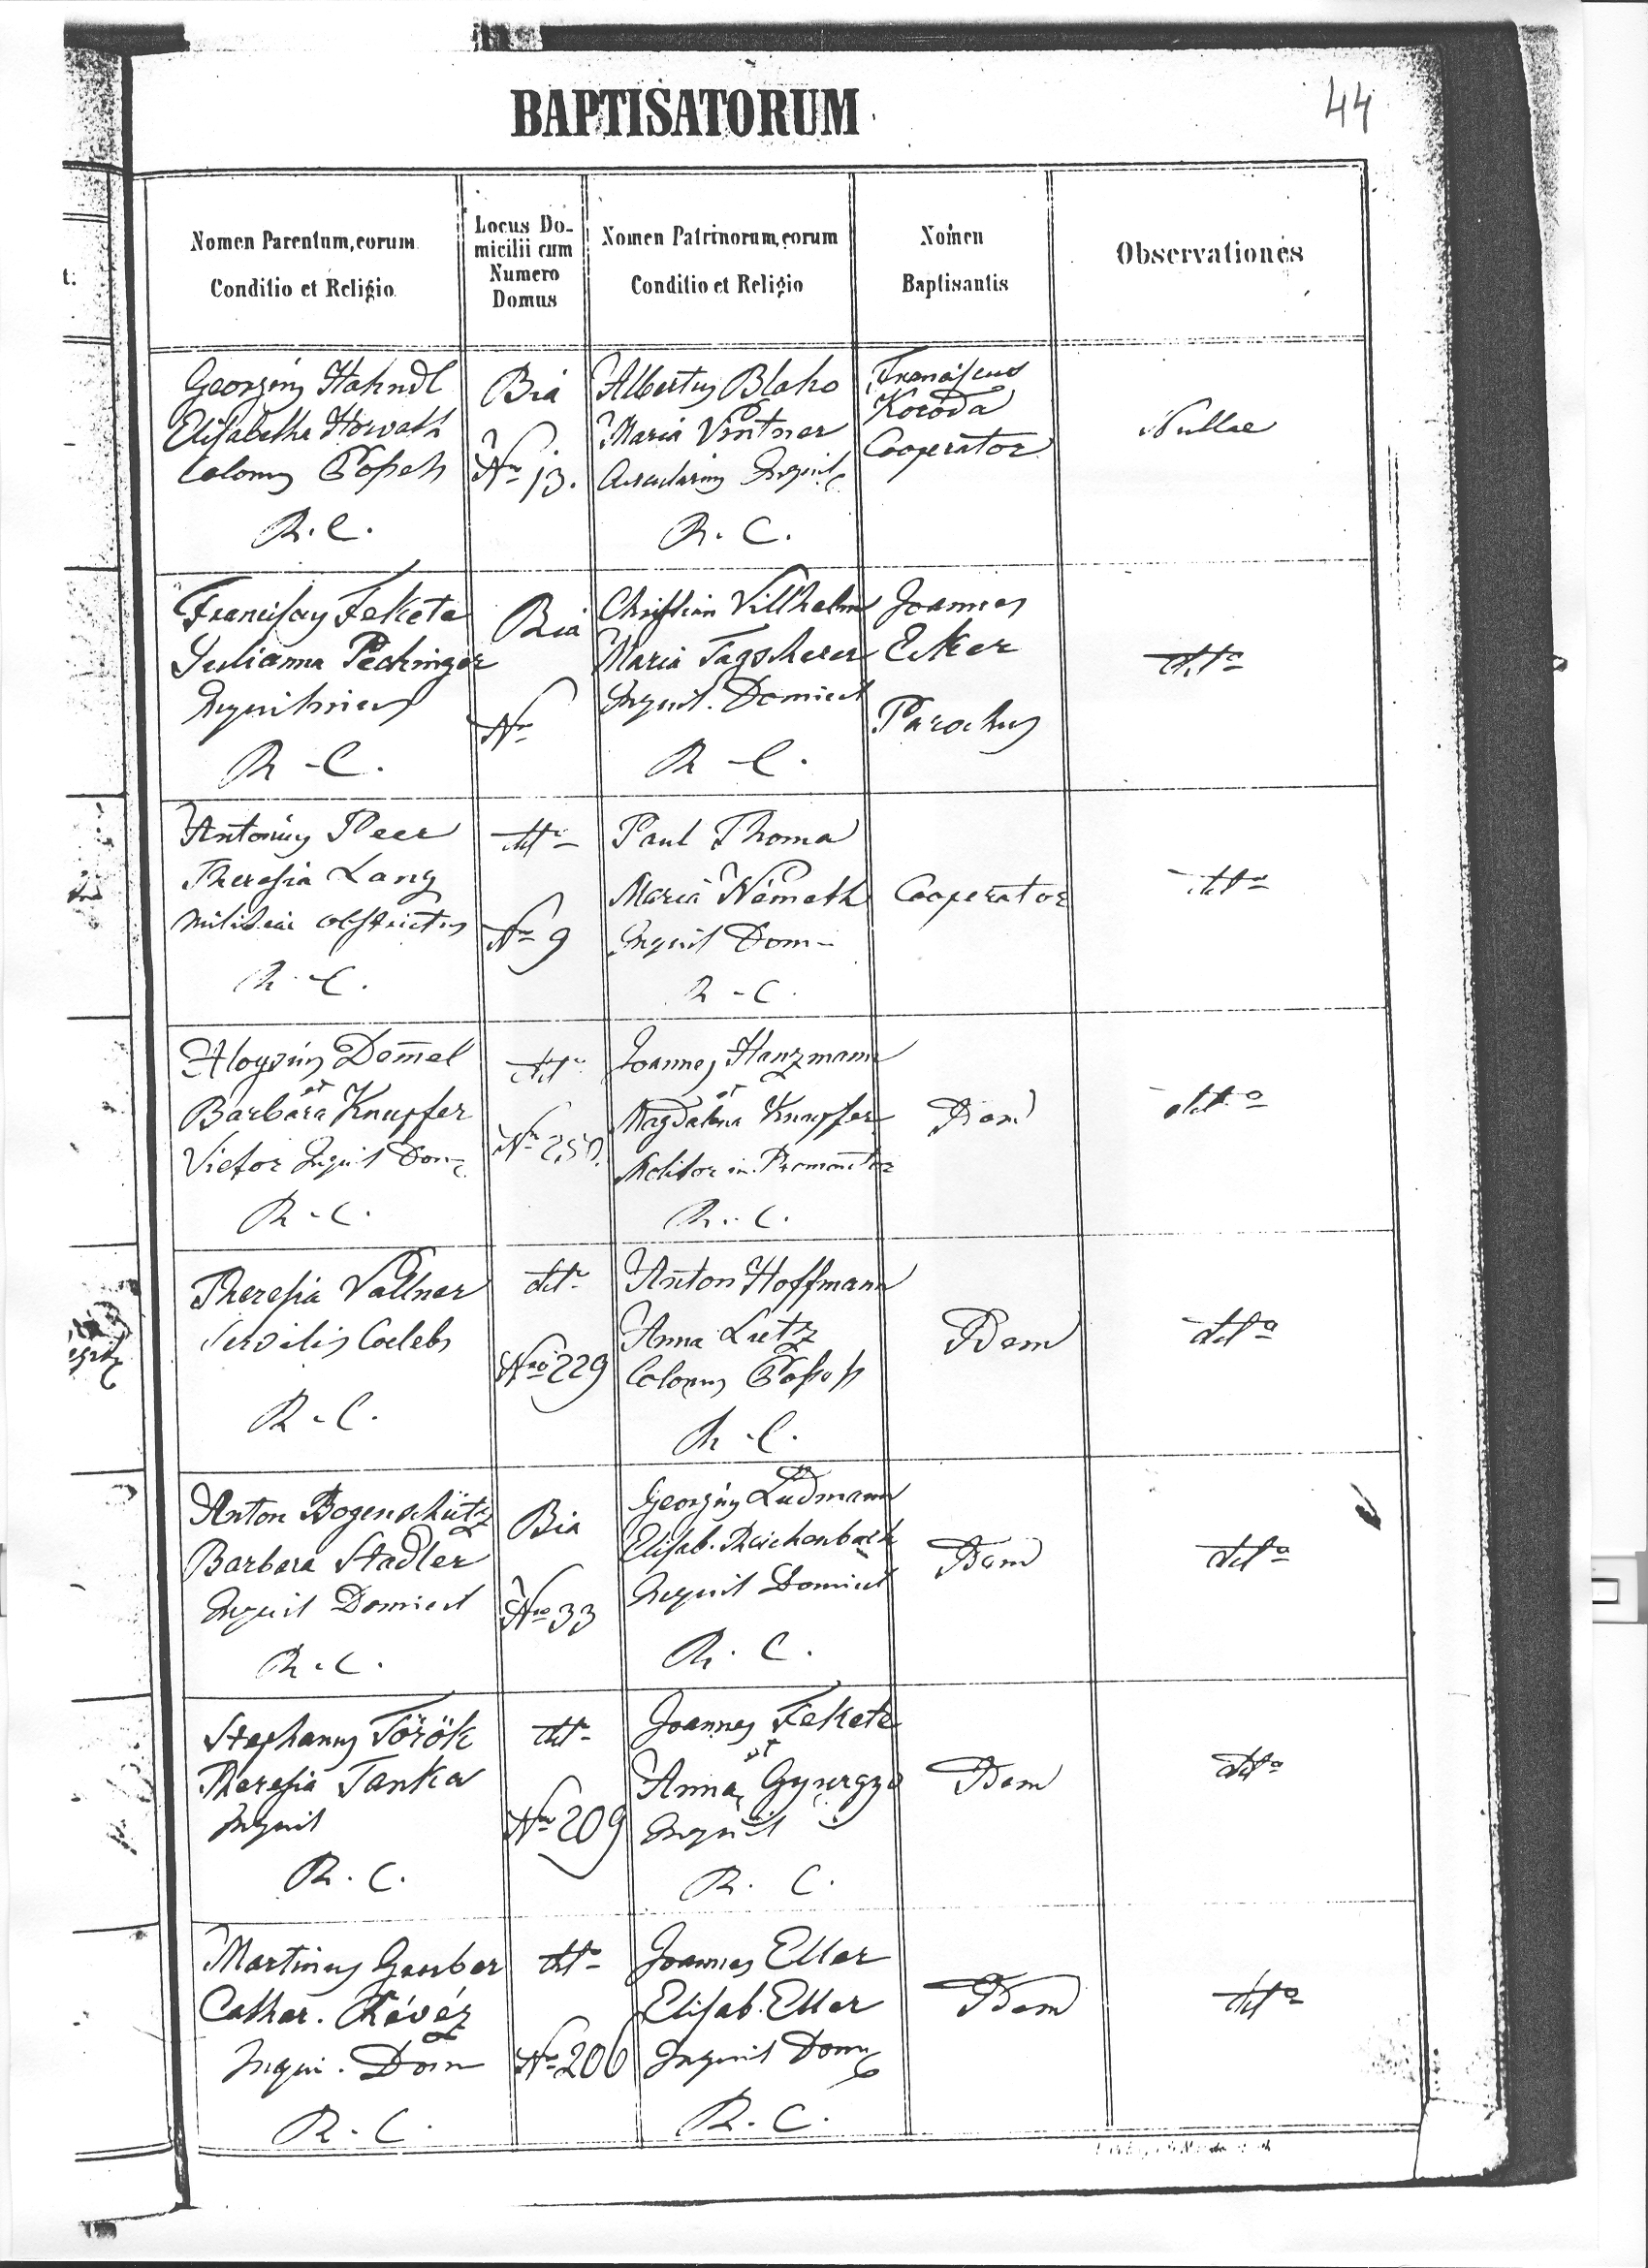 BAPTISATORUM
44
Nomen Parentum, eorum
Conditio et Religio
Locus Do-
micilii cum
Numero
Domus
Nomen Patrinorum, eorum
Conditio et Religio
Nomen
Baptisantis
Observationes
Georgius Hahndl
Elisabetha Horvath
Colonus
R. C.
Bia
Nro 13.
Albertus Blaho
Maria Vintner
Arcularius Inquil
R. C.
Franciscus
Kocoda
Cooperator
Nullae
Franciscus Fekete
Julianna Pechinger
Inquilinus
R - C.
Bia
Nro
Christian Villhelm
Maria Tagscherer
Inquil. Domicil
R - C.
Joannes
Eker
Parochus
ditto
Antonius Peer
Theresia Lang
Militiae obstrictus
R - C.
ditto
Nro 9
Paul Thoma
Maria Németh
Inquil Dom -
R - C.
Cooperator
ditto
Aloysius Dem̄el
et
Barbara Knupfer
Vietor Inquil Dom
R - C.
ditto
Nro 250.
Joannes Hanzmann
et
Magdalena Knupfer
Molitor in Promontor
R. C.
Dem
ditto
Theresia Vallner
Servilis Coelebs
R - C.
ditto
Nro 229
Anton Hoffmann
Anna Lutz
Colonus
R - C.
Dem
ditto
Anton Bogenschütz
Barbara Stadler
Inquil Domicil
R - C.
Bia
Nro 33
Georgius Ludmann
Elisab. Reichenbach
Inquil Domicil
R. C.
Dem
ditto
Stephanus Török
Theresia Tanka
Inquil
R. C.
ditto
Nro 209
Joannes Fekete
et
Anna
Inquil
R. C.
Dem
ditto
Martinus Gauber
Cathar. Révéz
Inqui. Dom
R. C.
ditto
Nro 206
Joannes Eller
Elisab. Eller
Inquil Dom
R. C.
Dem
ditto